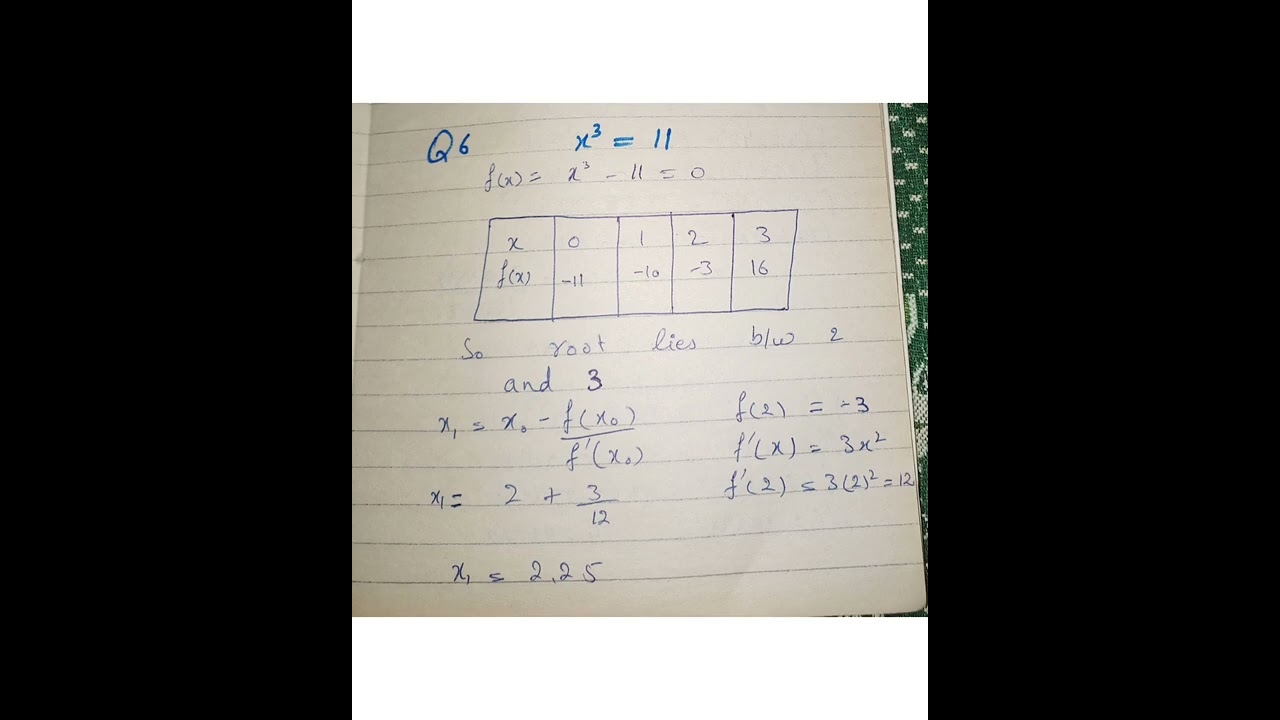 Q6 x³ = 11
f(x) = x³ - 11 = 0
x 0 1 2 3
f(x) -11 -10 -3 16
So root lies b/w 2
and 3
x₁ = x₀ - f(x₀)/f'(x₀)
f(2) = -3
f'(x) = 3x²
f'(2) = 3(2)² = 12
x₁ = 2 + 3/12
x₁ = 2.25